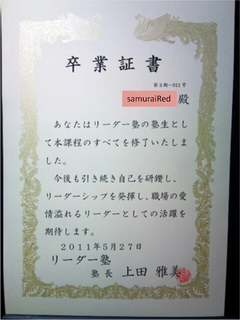 卒業証書
第8期-011号
samuraiRed 殿
あなたはリーダー塾の塾生とし
て本課程のすべてを修了いたしま
した。
今後も引き続き自己を研鑽し、
リーダーシップを発揮し、職場の愛
情溢れるリーダーとしての活躍を
期待します。
2011年5月27日
リーダー塾
塾長 上田 雅美